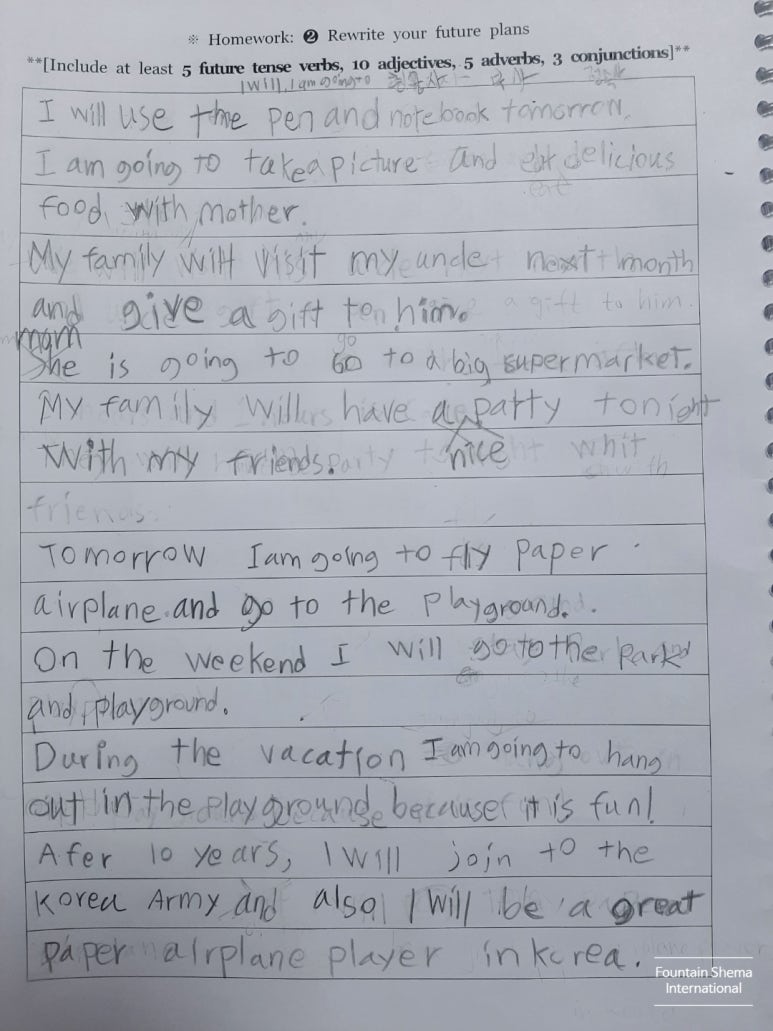 ※ Homework: ❷ Rewrite your future plans
**[Include at least 5 future tense verbs, 10 adjectives, 5 adverbs, 3 conjunctions]**
I will, I am going to 형용사 부사 접속사
I will use the pen and notebook tomorrow.
I am going to take a picture and eat delicious
eat
food with mother.
My family will visit my uncle next month
and give a gift to him. a gift to him.
mom
She is going to go to a big supermarket.
My family will have a party tonight
with my friends. nice whit
friends.
Tomorrow I am going to fly paper
airplane and go to the playground.
On the weekend I will go to the park
and playground.
During the vacation I am going to hang
out in the playground because it is fun!
Afer 10 years, I will join to the
Korea Army and also I will be a great
paper airplane player in korea.
Fountain Shema
International